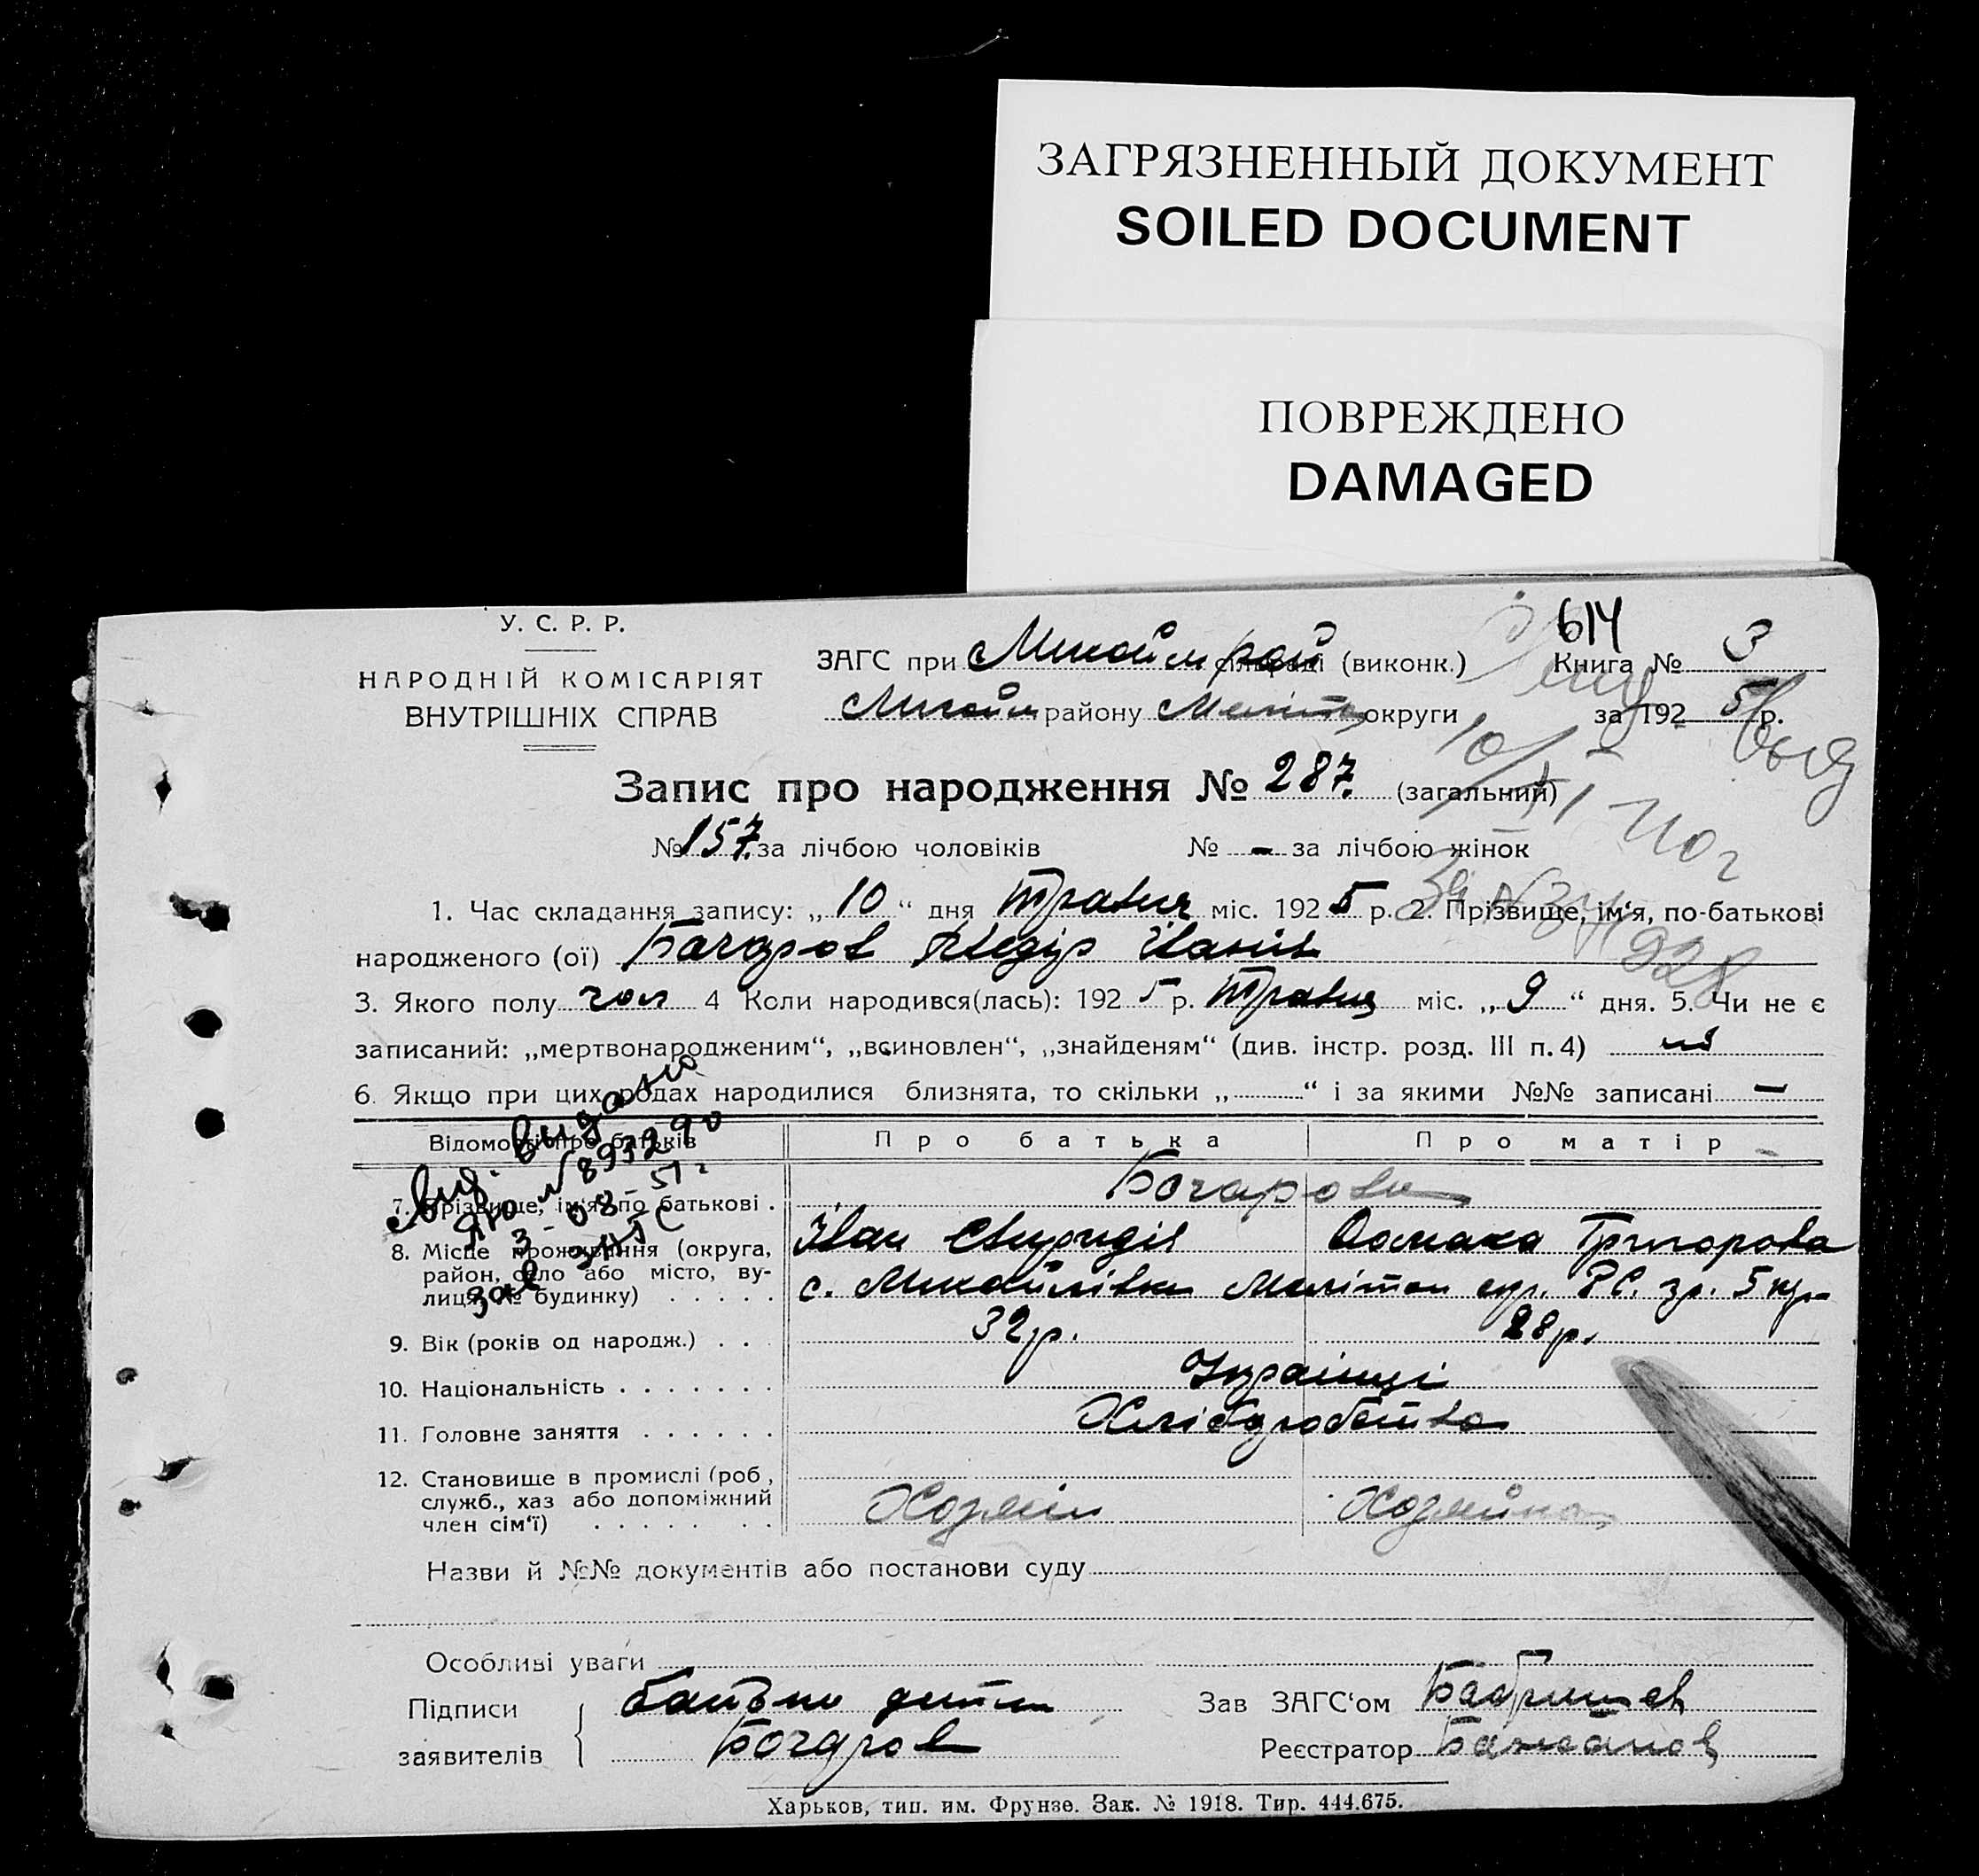 ЗАГРЯЗНЕННЫЙ ДОКУМЕНТ
SOILED DOCUMENT
ПОВРЕЖДЕНО
DAMAGED
У. С. Р. Р.
НАРОДНІЙ КОМІСАРІЯТ
ВНУТРІШНІХ СПРАВ
614
ЗАГС при сільраді (виконк.) Книга № 3
району округи за 1925 р.
Запис про народження № 287. (загальний)
№ 157. за лічбою чоловіків № - за лічбою жінок
1. Час складання запису: „10“ дня Травня міс. 1925 р. 2. Прізвище, ім‘я, по-батькові
народженого (ої) Бочаров Федір Іванів
3. Якого полу чол 4 Коли народився(лась): 1925 р. Травня міс. „9“ дня. 5. Чи не є
записаний: „мертвонародженим“, „всиновлен“, „знайденям“ (див. інстр. розд. III п. 4) ні
6. Якщо при цих родах народилися близнята, то скільки „ “ і за якими №№ записані —
Відомості про батьків Про батька Про матір
7. Прізвище, ім‘я, по батькові . Бочарови
Іван Григорова
8. Місце проживання (округа,
район, село або місто, ву-
лиця, № будинку) . . . . . с. Михайлівки
9. Вік (років од народж.) . . . 32 р. 28 р.
10. Національність . . . . . . . Українці
11. Головне заняття . . . . . . Хліборобство
12. Становище в промислі (роб,
служб., хаз або допоміжний
член сім‘ї) . . . . . . . Хозяїн Хозяйка
Свид. видано
ЯЮ № 893290
3-08-51 г
зав ЗАГС
Назви й №№ документів або постанови суду
Особливі уваги
Підписи
заявителів
батько дитини
Бочаров
Зав ЗАГС‘ом
Реєстратор
Харьков, тип. им. Фрунзе. Зак. № 1918. Тир. 444.675.